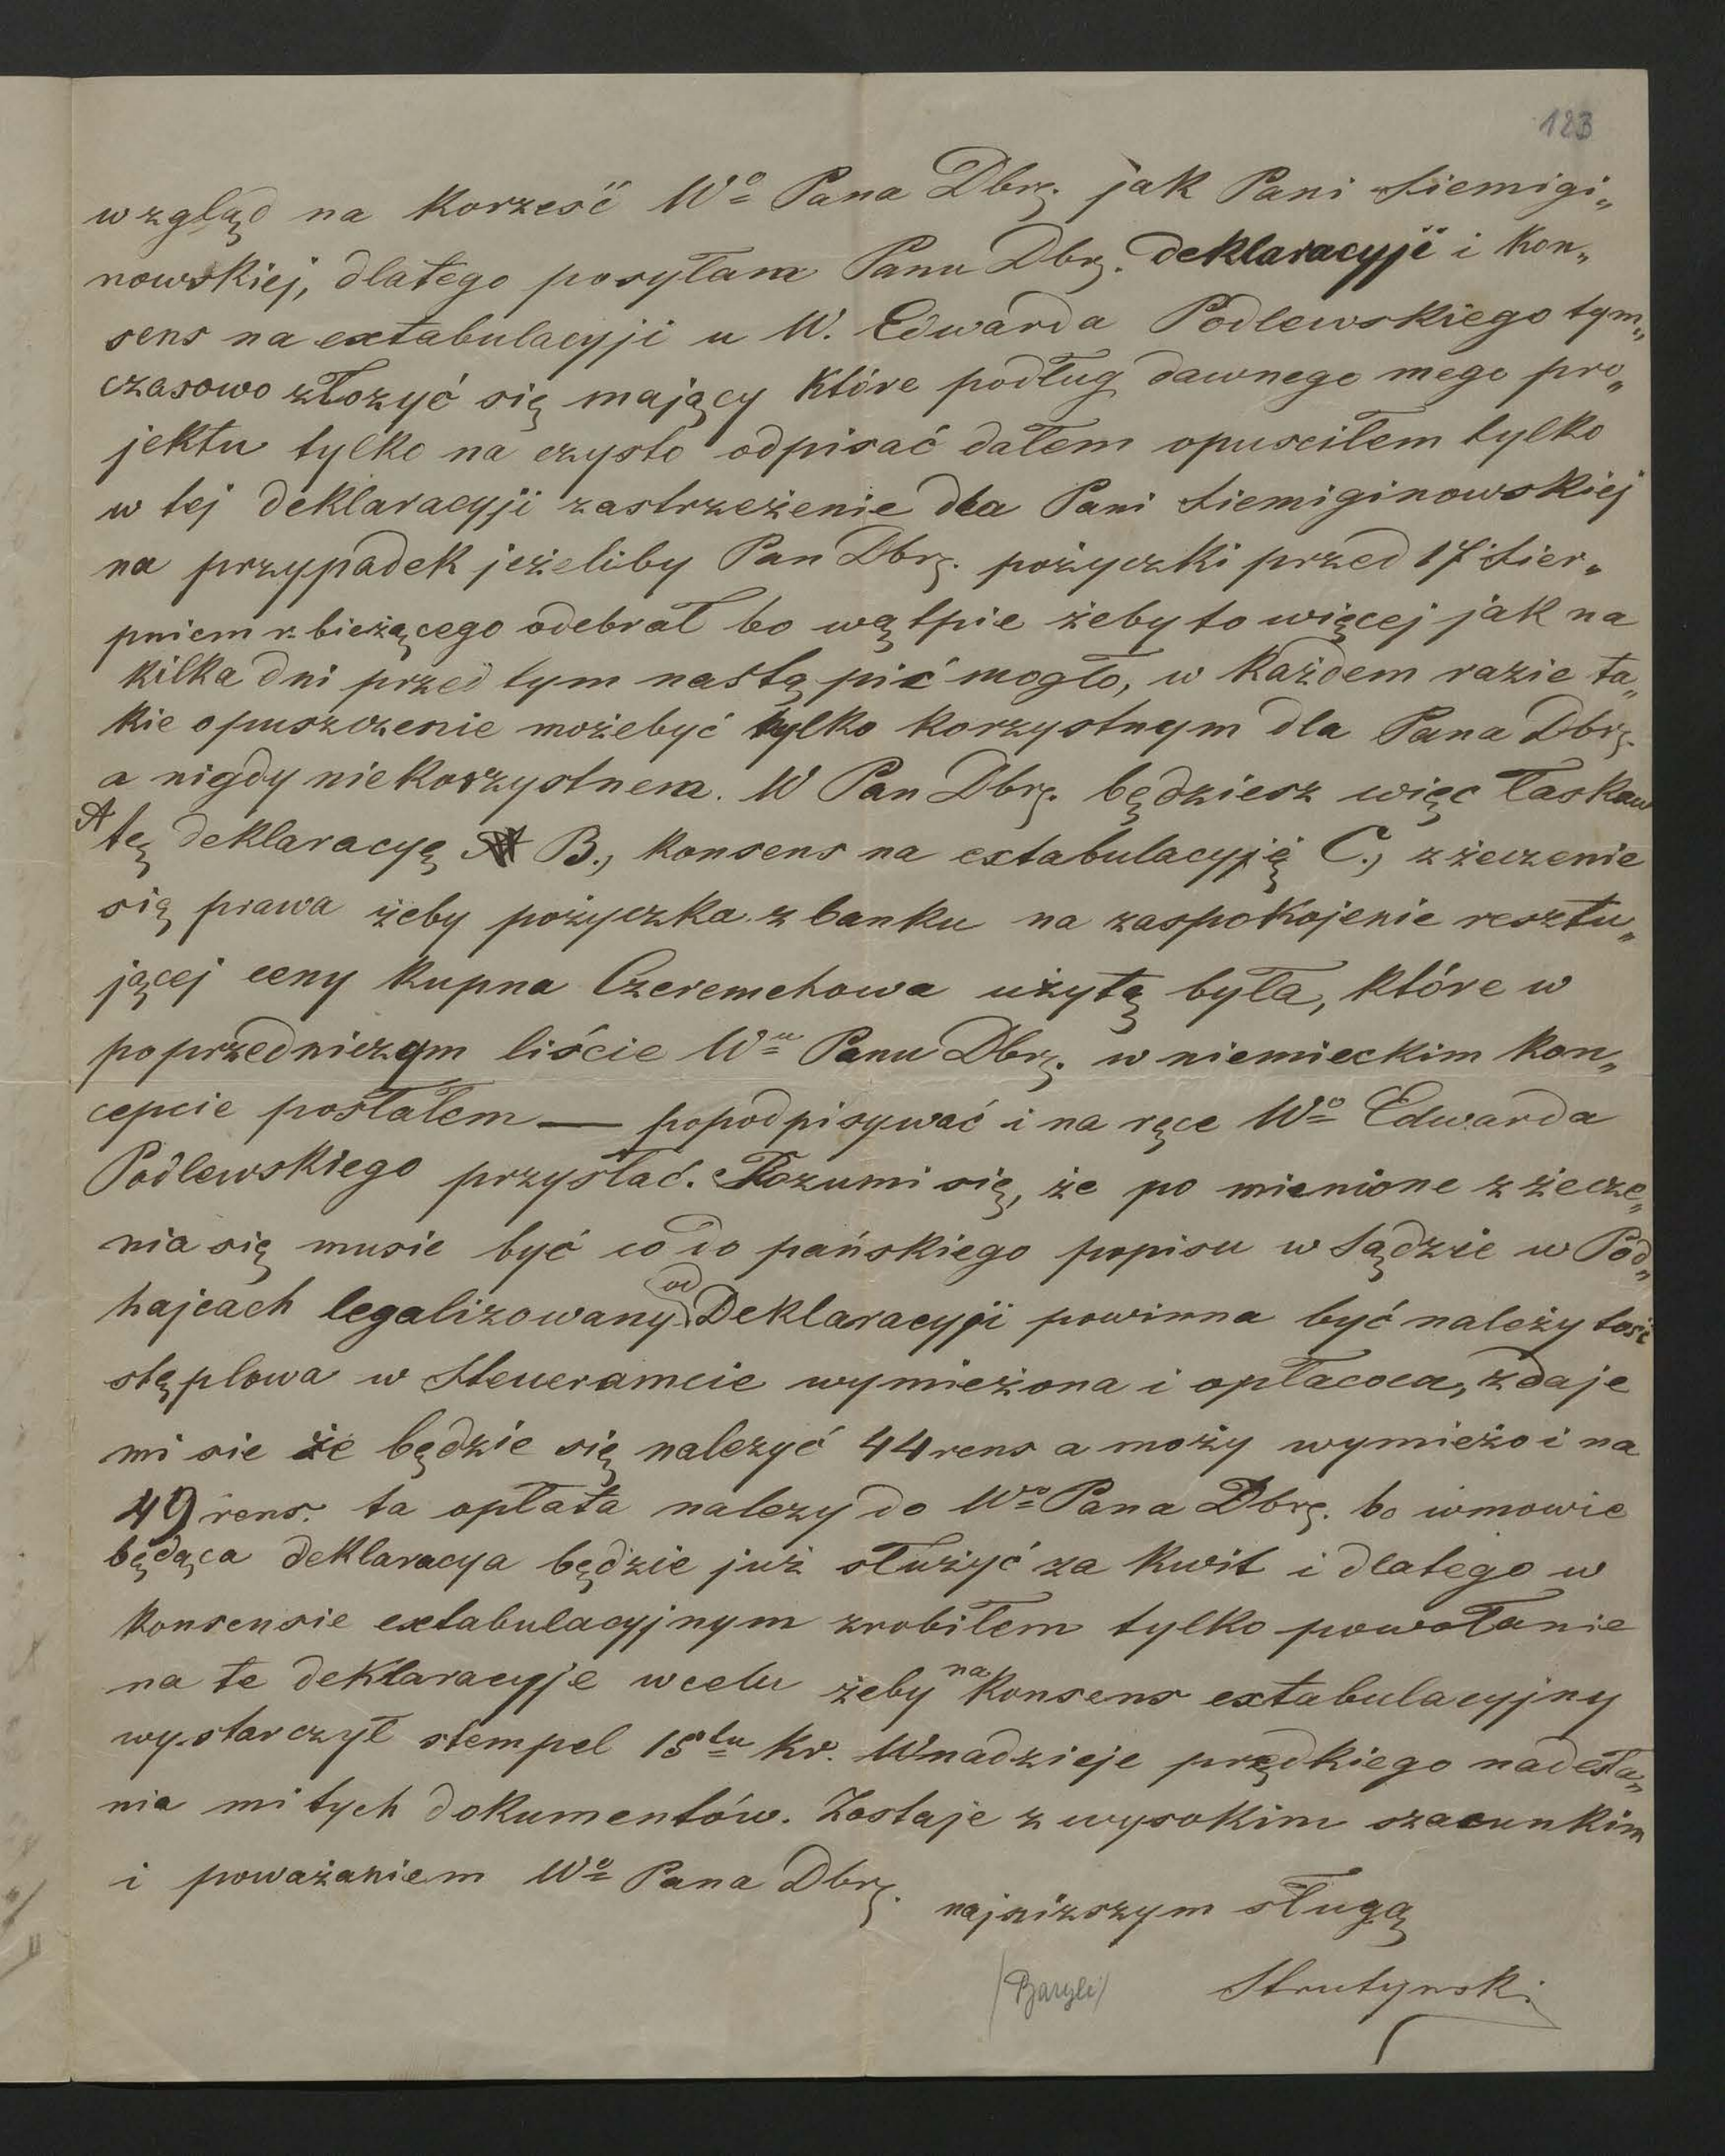 123
wzgląd na korześć Wo Pana Dbrz. jak Pani Siemigi„
nowskiej, dlatego posyłam Panu Dbrz. deklaracyji i kon„
sens na extabulacyji u W. Edwarda Podlewskiego tym„
czasowo złozyć się mający które podług dawnego mego pro„
jektu tylko na czysto odpisać dałem opusciłem tylko
w tej deklaracyji zastrzeżenie dla Pani Siemiginowskiej
na przypadek jeżeliby Pan Dbrz. pożyczki przed 17 Sier„
pniem r. bieżącego odebrał bo wątpie żeby to więcej jak na
kilka dni przed tym nastąpić mogło, w każdem razie ta„
kie opuszczenie możebyć tylko korzystnym dla Pana Dbrz.
a nigdy niekorzystnem. W Pan Dbrz. będziesz więc łaskaw
A tę deklaracyę B., konsens na extabulacyją C., zżeczenie
się prawa żeby pożyczka z banku na zaspokojenie resztu„
jącej ceny kupna Czeremchowa użytą była, które w
poprzedniczym liście Wmu Panu Dbrz. w niemieckim kon„
cepcie posłałem — popodpisywać i na ręce Wo Edwarda
Podlewskiego przysłać. Rozumi się, że po mienione zżecze„
nia się musie być co do pańskiego popisu w Sądzie w Pod„
hajcach legalizowany od Deklaracyji powinna być należytość
stęplowa w Steueramcie wymieżona i opłacona, zdaje
mi sie że będzie się nalezyć 44 rens a moży wymieżo i na
49 rens. ta opłata nalezy do Wo Pana Dbrz. bo wmowie
będąca deklaracya będzie już służyć za kwit i dlatego w
konsensie extabulacyjnym zrobiłem tylko powołanie
na te deklaracyje wcelu żeby na konsens extabulacyjny
wystarczył stempel 15tu kr. W nadzieje prędkiego nadesła„
nia mi tych dokumentów. Zostaje z wysokim szacunkim
i poważaniem Wo Pana Dbrz.
najniższym sługą
/Baryli/ Strutynski